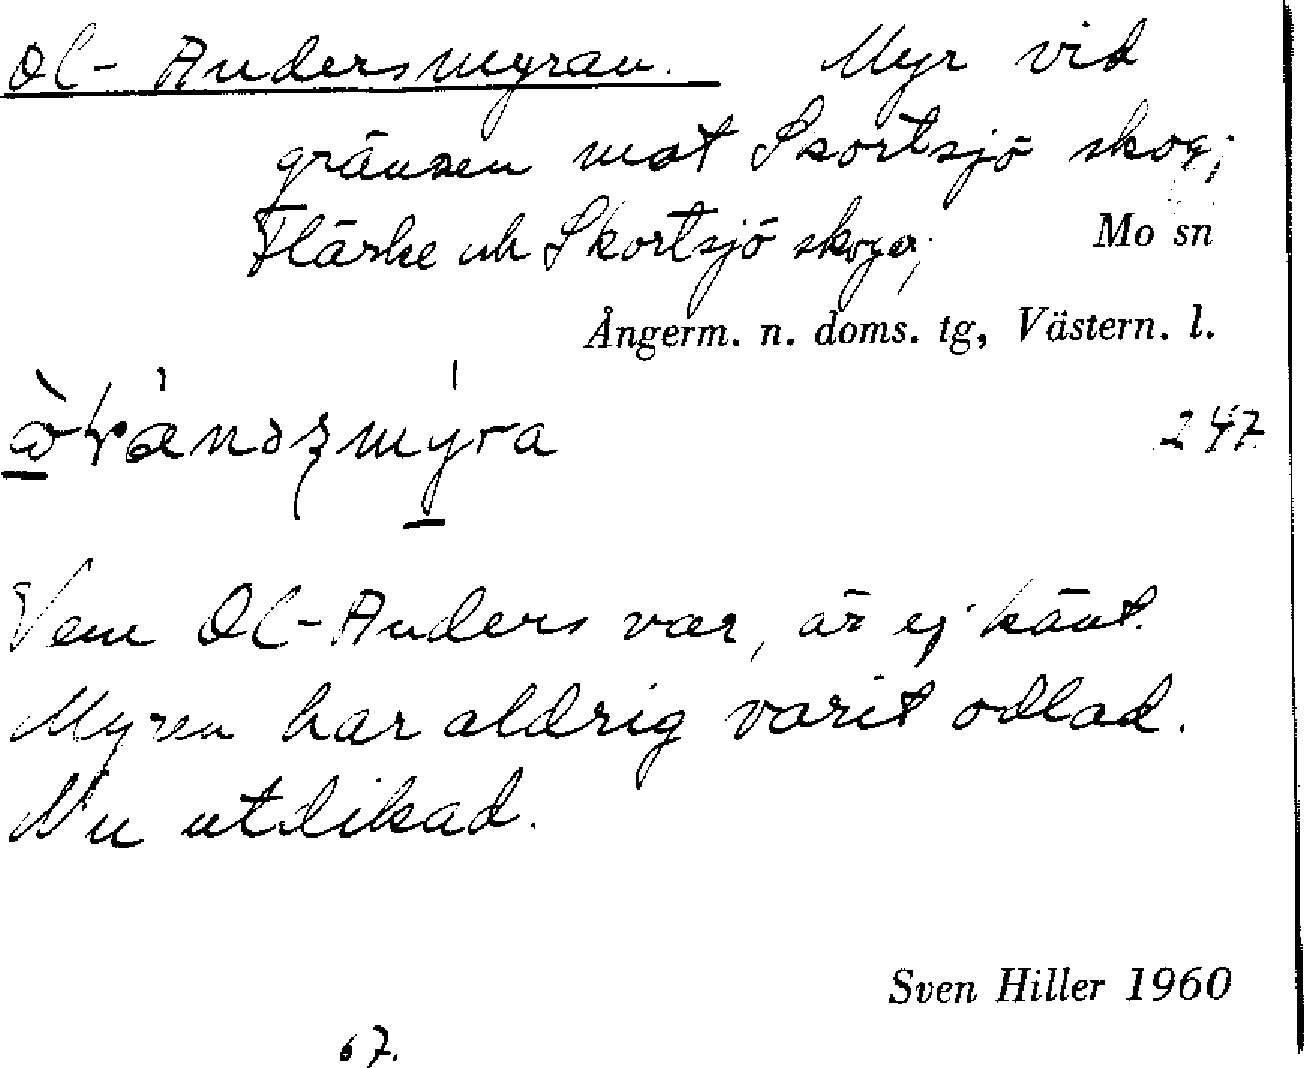 Ol-Andersmyran. Myr vid
gränsen mot Skortsjö skog;
Flärke uh Skortsjö skoga;
Mo sn
Ångerm. n. doms. tg, Västern. l.
247
Vem Ol-Anders var, är ej känt.
Myren har aldrig varit odlad.
Nu utdikad.
Sven Hiller 1960
67.